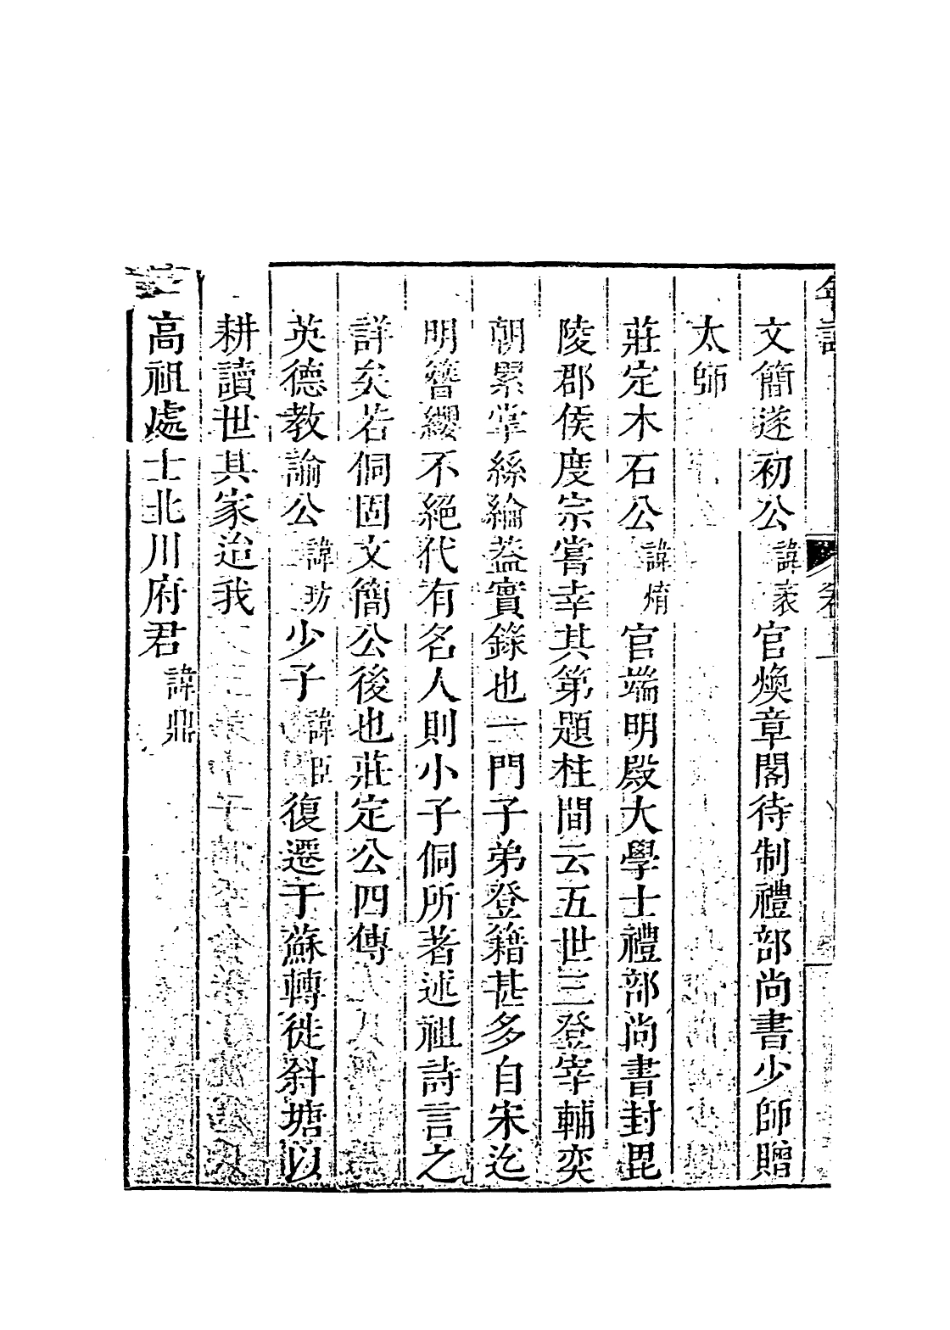 年譜 卷一
文簡遂初公諱袤官煥章閣待制禮部尚書少師贈
太師
莊定木石公諱焴官端明殿大學士禮部尚書封毘
陵郡侯度宗嘗幸其第題柱間云五世三登宰輔奕
朝累掌絲綸葢實錄也一門子弟登籍甚多自宋迄
明簪纓不絕代有名人則小子侗所著述祖詩言之
詳矣若侗固文簡公後也莊定公四傳
英德教諭公諱玏少子諱臣復遷于蘇轉徙斜塘以
耕讀世其家迨我
高祖處士北川府君諱鼎